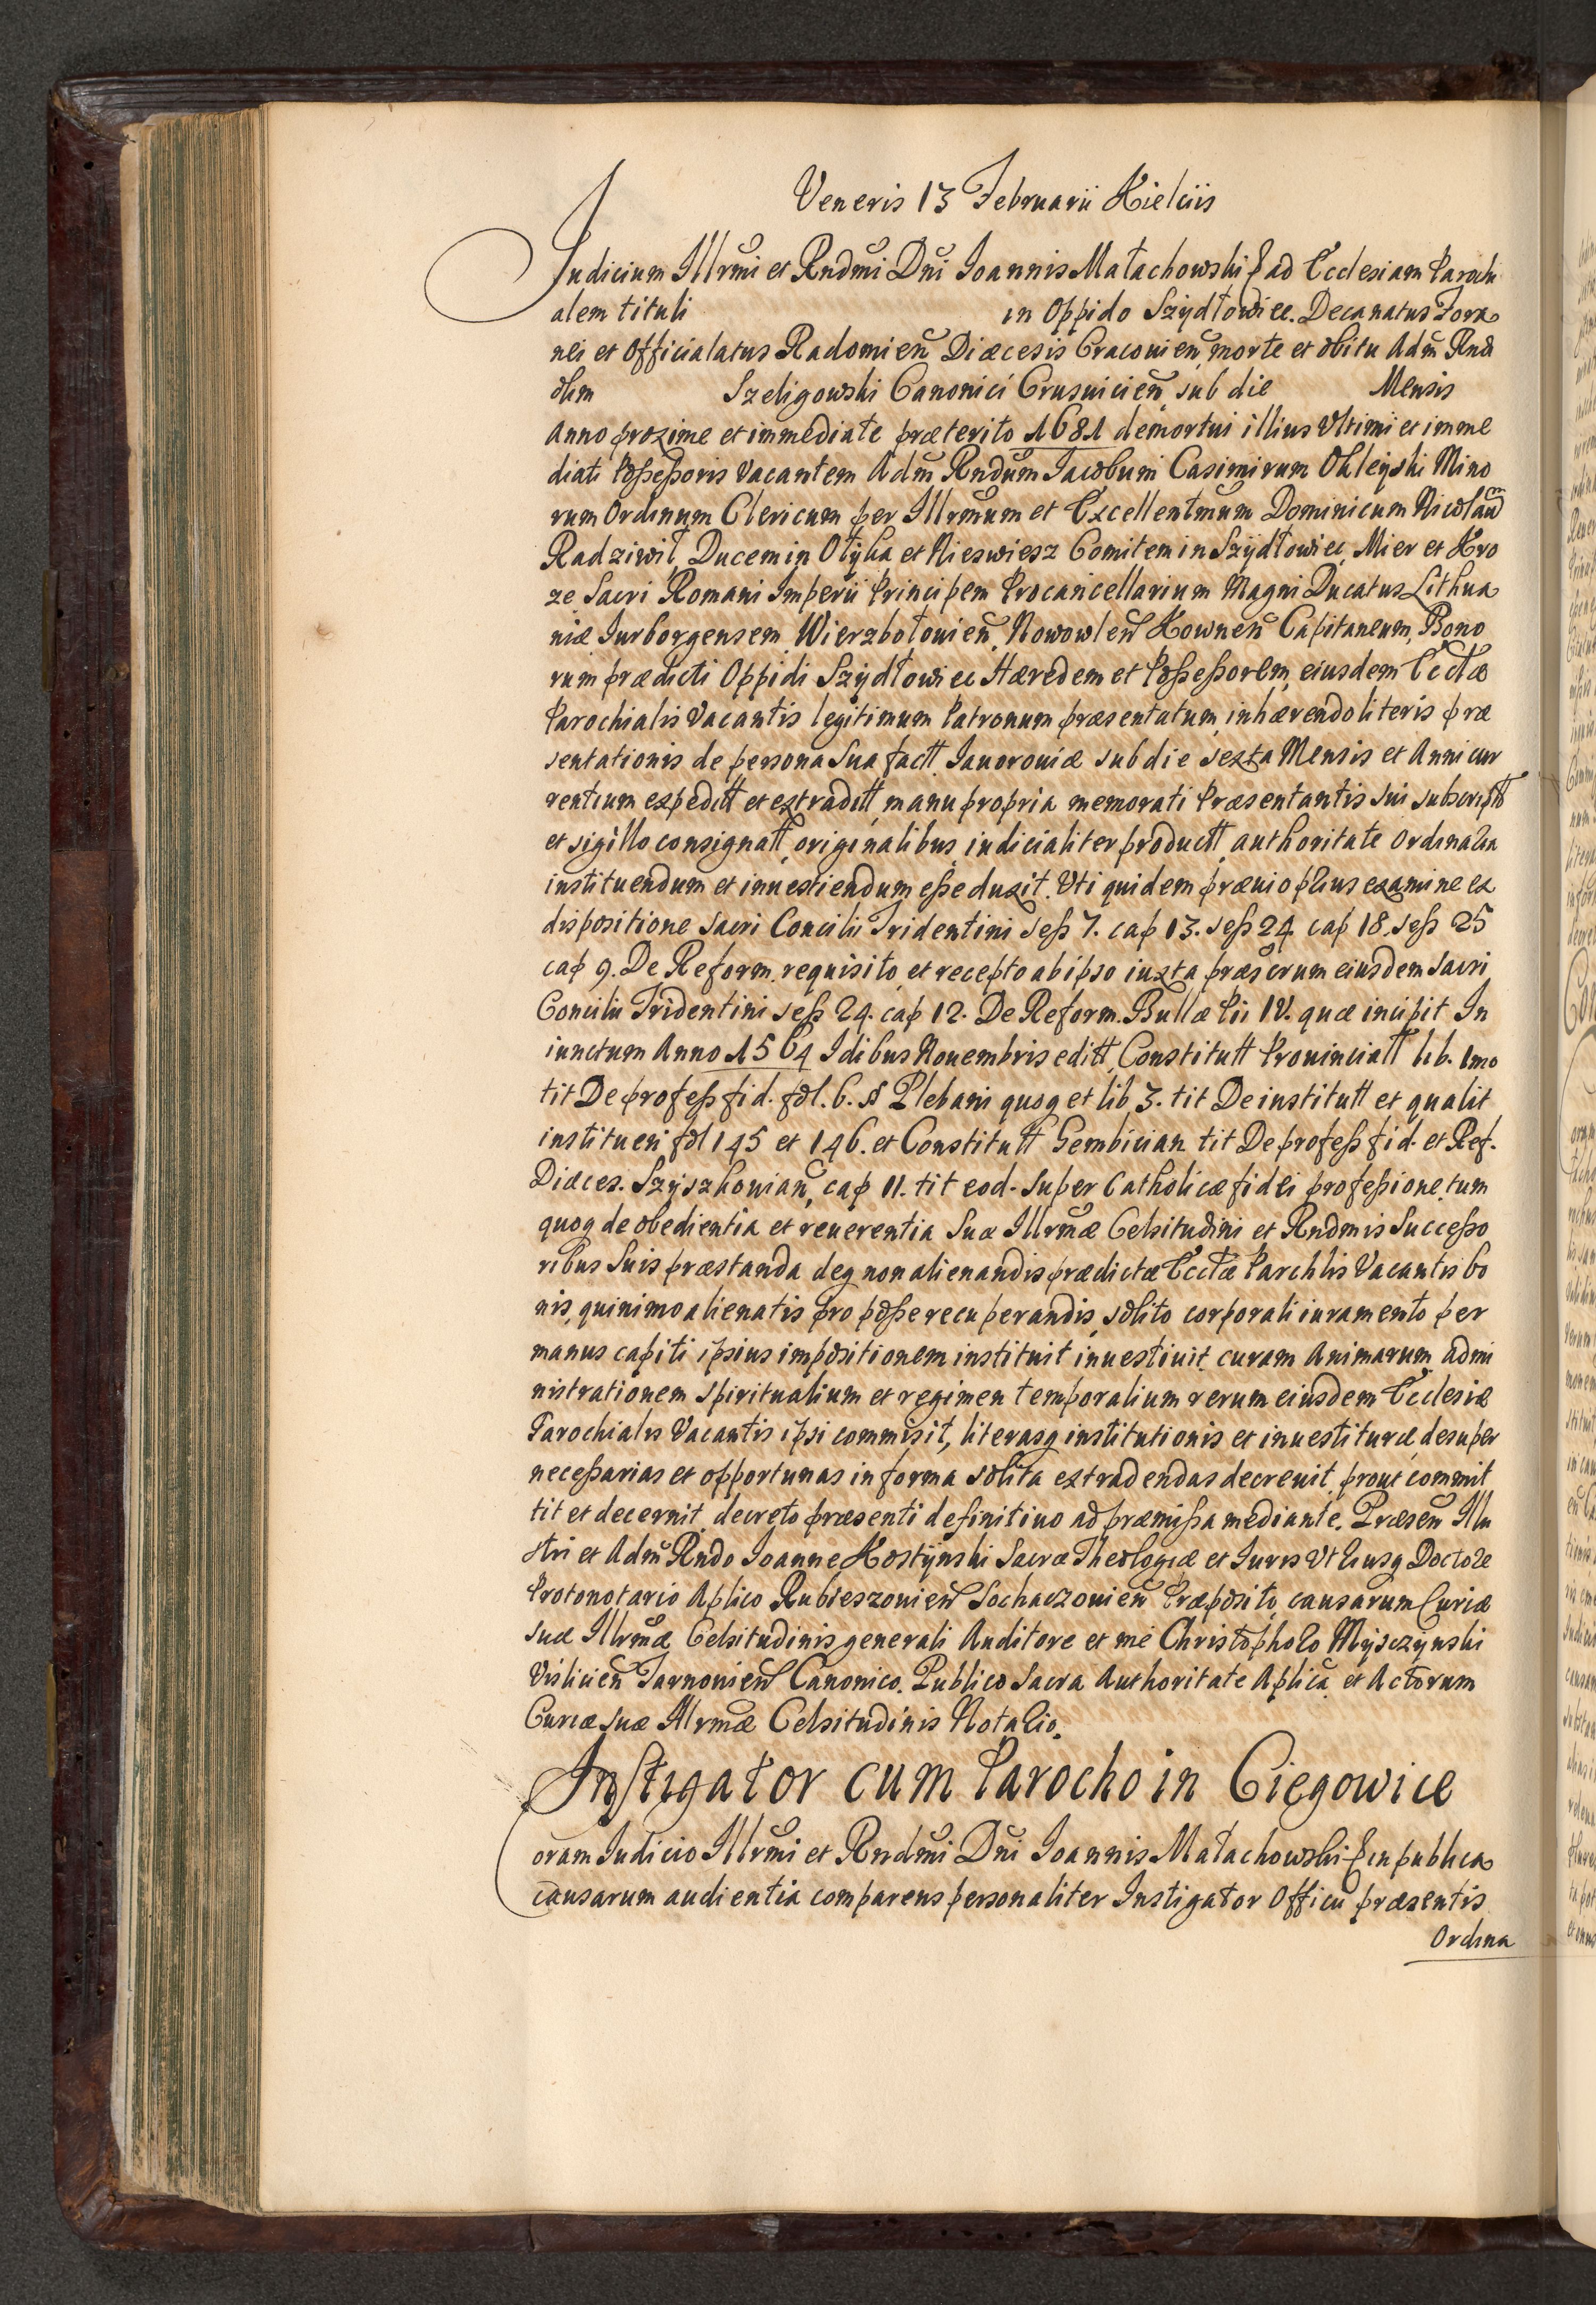 Veneris 13 Februarii Kielciis
Iudicium Illrmi et Rndmi Dni Ioannis Małachowski ad Ecclesiam Parochi
alem tituli in Oppido Szydłowiec. Decanatus Fora
nei et Officialatus Radomien Diæcesis Cracouien morte et obitu Adm Rnd
olim Szeligowski Canonici Crusuicien sub die Mensis
Anno proxime et immediate præterito 1681 demortui illius Vltimi et imme
diati Poßeßoris Vacantem Adm Rndum Iacobum Casimirum Okleyski Mino
rum Ordinum Clericum per Illrmum et Excellentmum Dominicum Nicolaum
Radziwił, Ducem in Ołyka et Nieswiesz Comitem in Szydłowiec, Mier et Kro
ze Sacri Romani Imperii Principem Procancellarium Magni Ducatus Lithua
niæ Iurborgensem, Wierzbołouien, Nowowlen Kownen Capitaneum, Bono
rum prædicti Oppidi Szydłowiec Hæredem et Poßeßorem, eiusdem Ecctæ
Parochialis Vacantis legitimum Patronum præsentatum, inhærendo literis præ
sentationis de persona Sua factt. Iauorouiæ sub die sexta Mensis et Anni cur
rentium expeditt et extraditt, manu propria memorati Præsentantis sui subscripto
et sigillo consignatt, originalibus, iudicialiter productt, authoritate Ordinaria
instituendum et inuestiendum eße duxit. Vti quidem præuio prius examine ex
dispositione sacri Concilii Tridentini seß 7. cap 13. seß 24 cap 18. seß 25
cap 9. De Reform. requisito, et recepto ab ipso iuxta præscrum eiusdem Sacri
Concilii Tridentini seß 24. cap 12. De Reform. Bullæ Pii IV. quæ incipit In
iunctum Anno 1564 Idibus Nouembris editt, Constitutt Prouinciatt lib. 1mo
tit De profeß fid. fol. 6. § Plebani quoq et lib 3. tit De institutt et qualit
instituen fol 145 et 146. et Constitutt Gembician tit De profeß fid. et Ref.
Diæces. Szyszkouian, cap 11. tit eod. super Catholicæ fidei profeßione, tum
quoq de obedientia et reuerentia Suæ Illrmæ Celsitudini et Rndmis Succeßo
ribus Suis præstanda deq non alienandis prædictæ Ecctæ Parchlis Vacantis bo
nis, quinimo alienatis pro poße recuperandis, solito corporali iuramento per
manus capiti ipsius impositionem instituit inuestiuit, curam Animarum, admi
nistrationem spiritualium et regimen temporalium rerum eiusdem Ecclesiæ
Parochialis Vacantis ipsi commisit, literasq institutionis et inuestituræ desuper
neceßarias et opportunas in forma solita extradendas decreuit, prout commit
tit et decernit, decreto præsenti definitiuo ad præmißa mediante. Præsen Illu
stri et Adm Rndo Ioanne Kostynski Sacræ Theologiæ et Iuris Vtriusq Doctore
Protonotario Aplico Rubieszouien Sochaczouien Præposito, causarum Curiæ
suæ Illrmæ Celsitudinis generali Auditore et me Christophoro Mysczynski
Vislicien Tarnouien Canonico. Publico Sacra Authoritate Aplica et Actorum
Curiæ suæ Illrmæ Celsitudinis Notario.
Instigator cum Parocho in Cięgowice
Coram Iudicio Illrmi et Rndmi Dni Ioannis Małachowski in publica
causarum audientia comparens personaliter Instigator Officii præsentis
Ordina